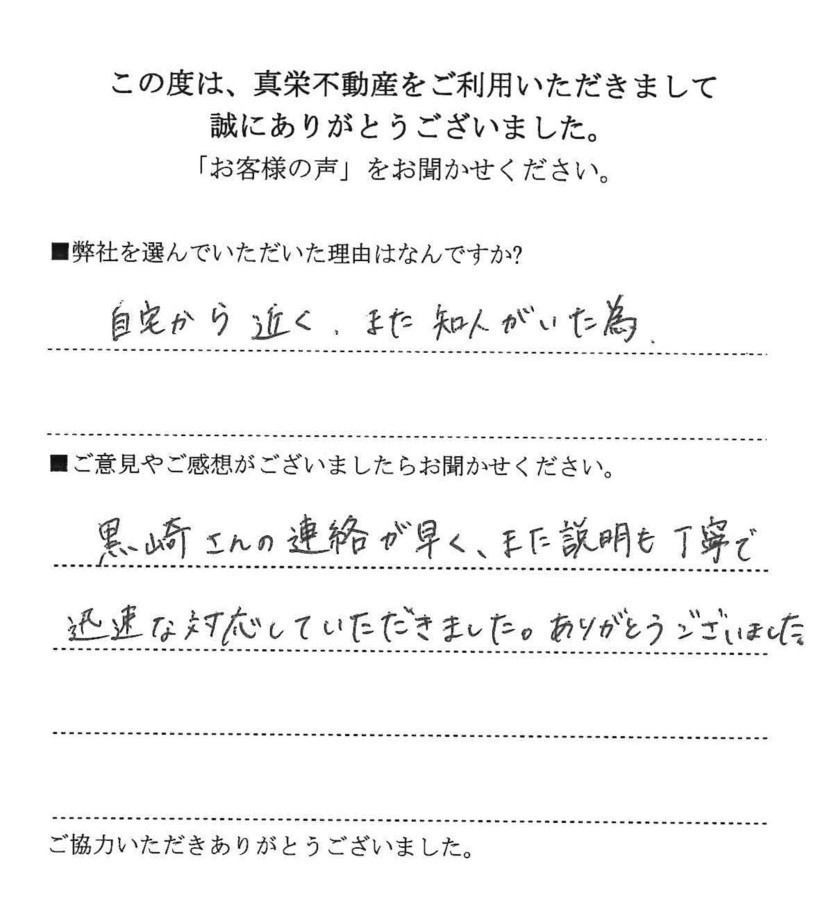 この度は、真栄不動産をご利用いただきまして
誠にありがとうございました。
「お客様の声」をお聞かせください。
■弊社を選んでいただいた理由はなんですか?
自宅から近く、また知人がいた為.
■ご意見やご感想がございましたらお聞かせください。
黒崎さんの連絡が早く、また説明も丁寧で
迅速な対応していただきました。ありがとうございました。
ご協力いただきありがとうございました。